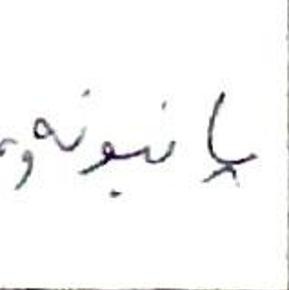 پانبونه و